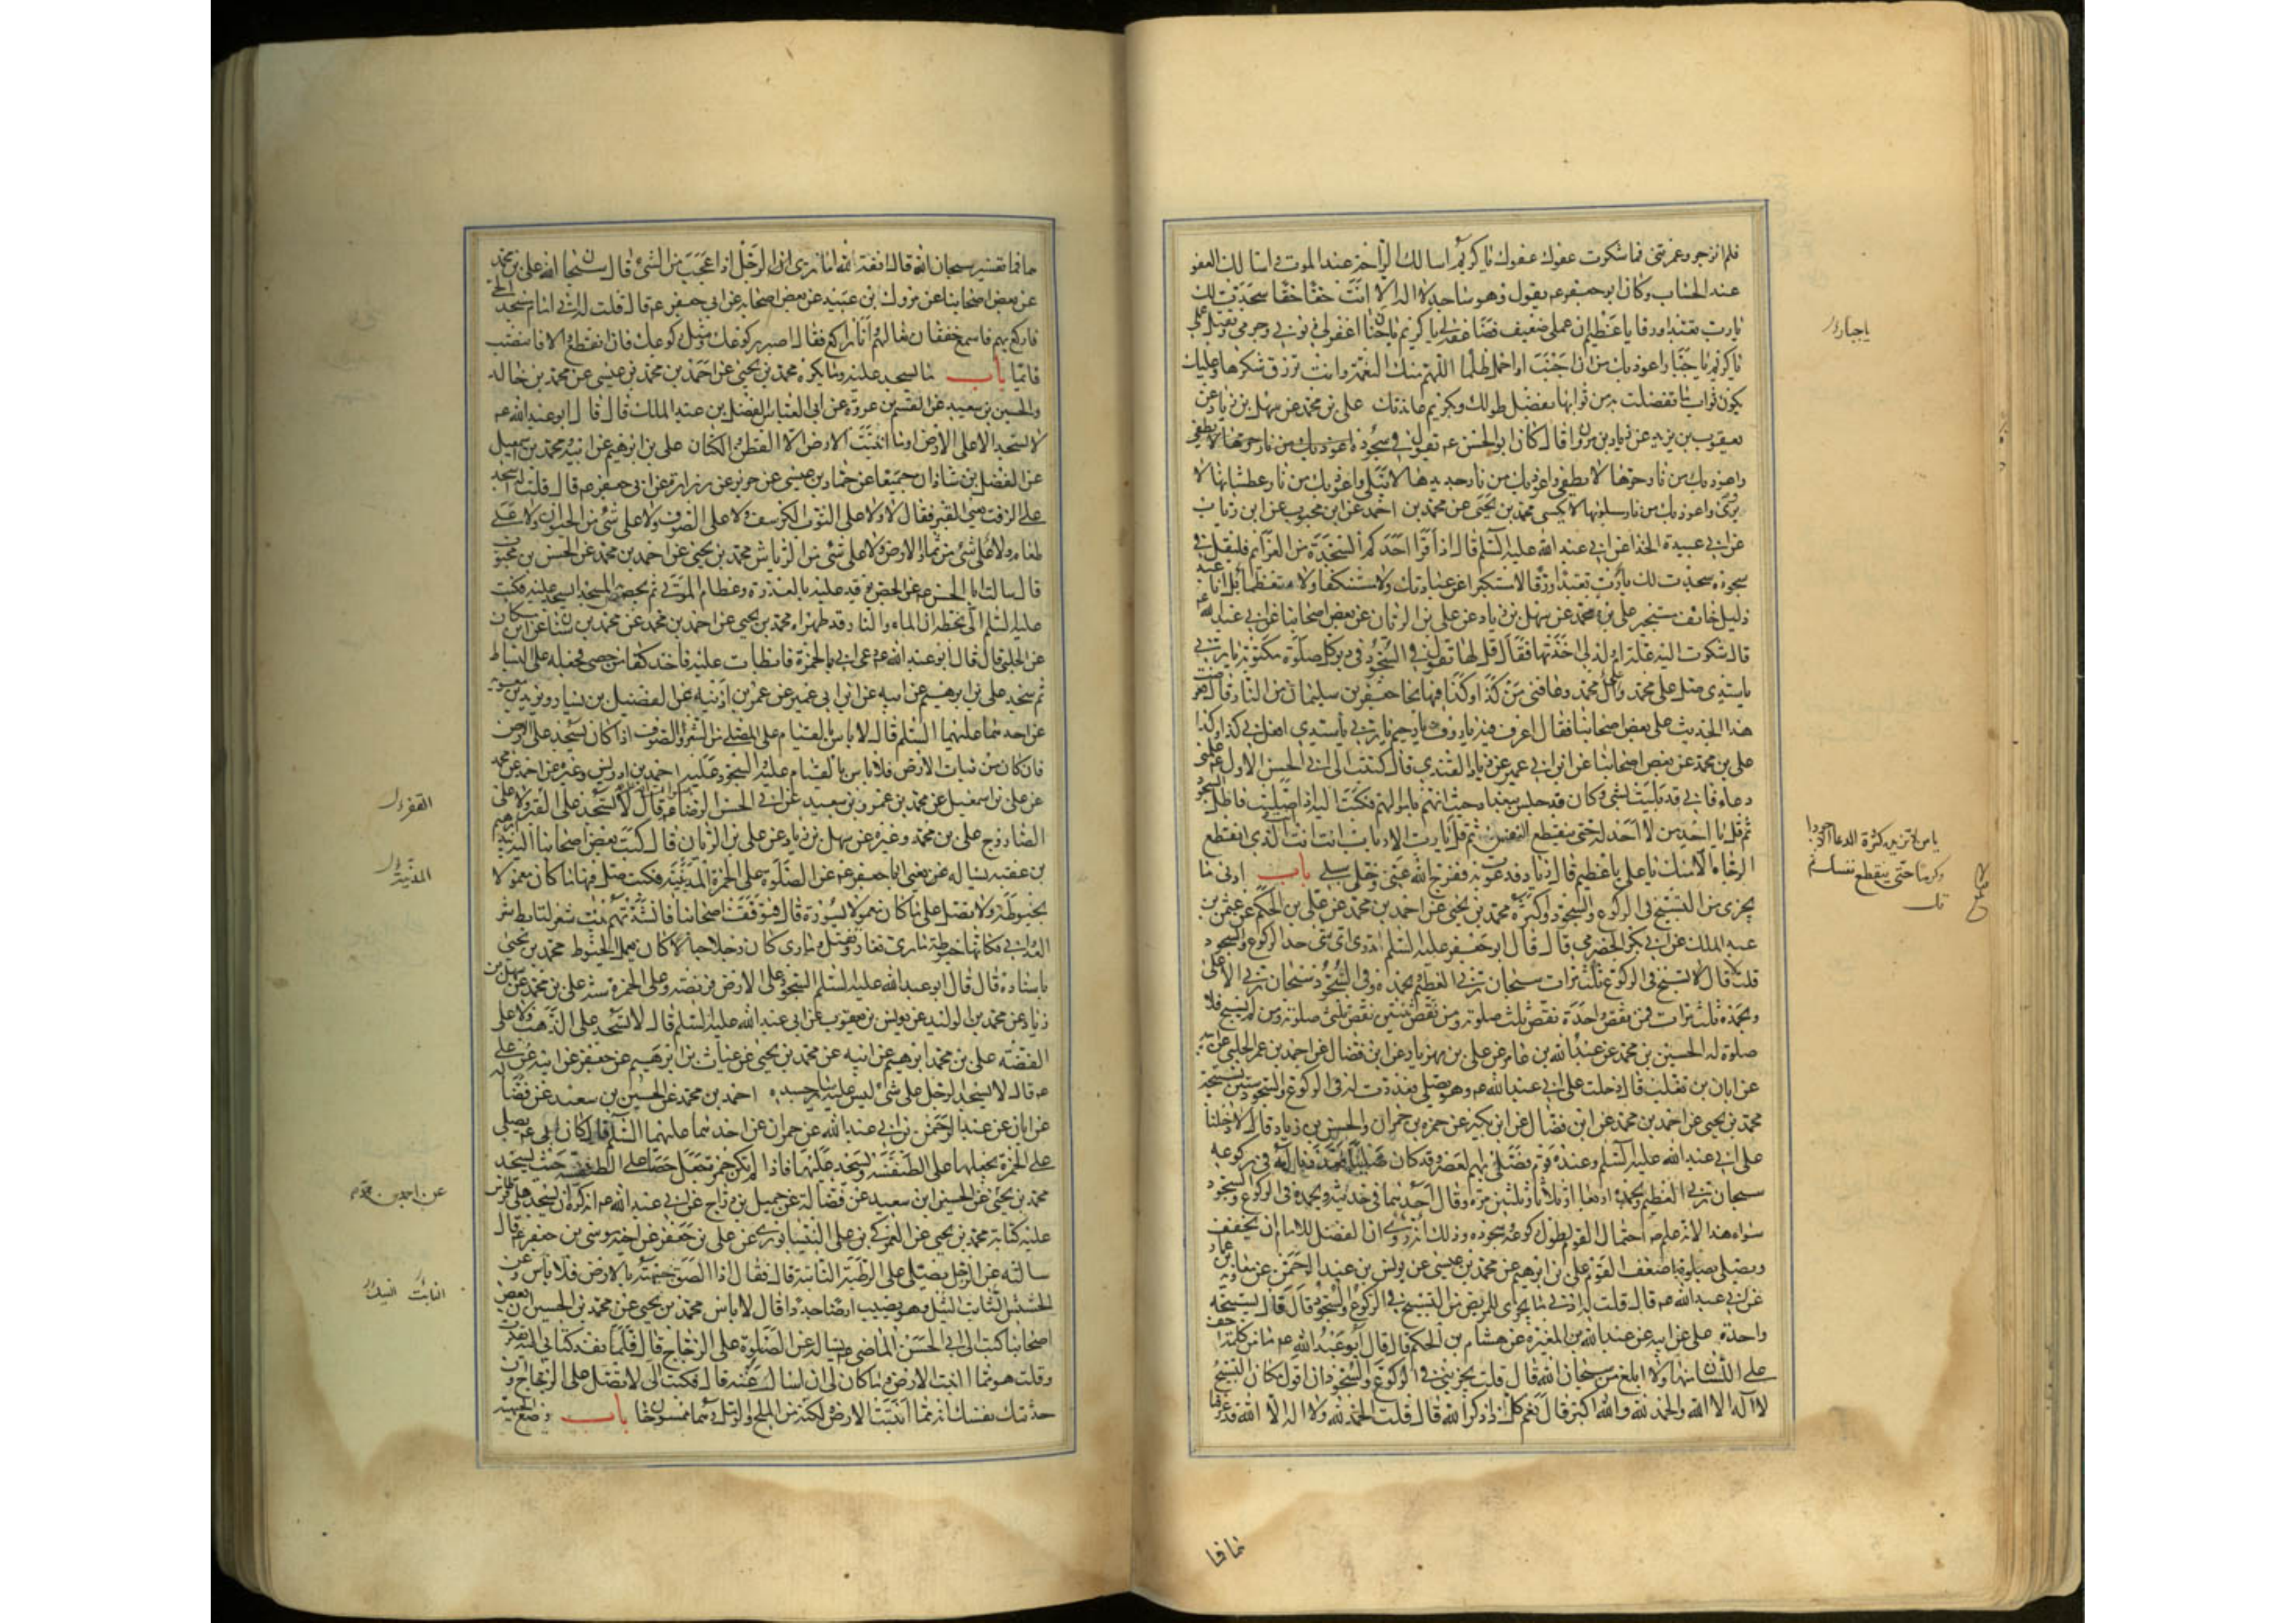 فلم انزجر وغمرتنی فما شکوت عفوك عفوك یا کریم اسالك الراحة عند الموت و اسالك العفو
عند الحساب وکان ابو جعفر عم یقول وهو ساجد لا اله الا انت حقا حقا سجدت لك
یارب تعبدا ورقا یا عظیم ان عملی ضعیف فضاعفه لی یا کریم یا حنان اغفر لی ذنوبی وجرمی وتقبل عملی
یا کریم یا جبار اعوذ بك من ان اخیب او احمل ظلما اللهم منك النعمة وانت ترزق شکرها وعلیك
یکون ثواب ما تفضلت به من ثوابها بفضل طولك وبکریم عائدتك علی بن محمد عن سهل بن زیاد عن
یعقوب بن یزید عن زیاد بن مروان قال کان ابو الحسن عم یقول فی سجوده اعوذ بك من نار حرها لا یطفی
واعوذ بك من نار حرها لا یطفی واعوذ بك من نار جدیدها لا یبلی واعوذ بك من نار عطشانها لا
یروی واعوذ بك من نار مسلوبها لا یکسی محمد بن یحیی عن محمد بن احمد عن ابن محبوب عن ابن رئاب
عن ابی عبیدة الحذا عن ابی عبد الله علیه السلم قال اذا قرا احدکم السجدة من العزائم فلیقل فی
سجوده سجدت لك یارب تعبدا ورقا لا مستکبرا عن عبادتك ولا مستنکفا ولا متعظما بل انا عبد
ذلیل خائف مستجیر علی بن محمد عن سهل بن زیاد عن علی بن الریان عن بعض اصحابنا عن ابی عبد الله عم
قال شکوت الیه علة ام ولد لی اخذتها فقال قل لها تقول فی السجود فی دبر کل صلوة مکتوبة یا ربی
یا سیدی صل علی محمد وال محمد وعافنی من کذا وکذا فبها نجا جعفر بن سلیمان من النار قال فعرضت
هذا الحدیث علی بعض اصحابنا فقال اعرف فیه یا رؤف یا رحیم یا ربی یا سیدی افعل بی کذا وکذا
علی بن محمد عن بعض اصحابنا عن ابن ابی عمیر عن زیاد القندی قال کتبت الی ابی الحسن الاول عم علمنی
دعاء فانی قد بلیت بشی وکان قد حبس ببغداد حیث اتهم باموالهم فکتب الیه اذا صلیت فاطل السجود
ثم قل یا احد من لا احد له حتی ینقطع النفس ثم قل یا رب الارباب انت انت انت الذی انقطع
الرجاء الا منك یا علی یا عظیم قال زیاد فدعوت به ففرج الله عنی وخلی سبیلی باب ادنی ما
یجزی من التسبیح فی الرکوع والسجود واکثره محمد بن یحیی عن احمد بن محمد عن علی بن الحکم عن عثمن بن
عبد الملك عن ابی بکر الحضرمی قال قال ابو جعفر علیه السلم اتدری ای شی حد الرکوع والسجود
قلت لا قال تسبح فی الرکوع ثلث مرات سبحان ربی العظیم وبحمده وفی السجود سبحان ربی الاعلی
وبحمده ثلث مرات فمن نقص واحدة نقص ثلث صلوته ومن نقص ثنتین نقص ثلثی صلوته ومن لم یسبح فلا
صلوة له الحسین بن محمد عن عبد الله بن عامر عن علی بن مهزیار عن ابن فضال عن احمد بن عمر الحلبی عن ابیه
عن ابان بن تغلب قال دخلت علی ابی عبد الله عم وهو یصلی فعددت له فی الرکوع والسجود ستین تسبیحة
محمد بن یحیی عن احمد بن محمد عن ابن فضال عن ابن بکیر عن حمزه بن حمران والحسن بن زیاد قالا دخلنا
علی ابی عبد الله علیه السلم وعنده قوم فصلی بهم العصر وقد کنا صلینا فعددنا له فی رکوعه
سبحان ربی العظیم وبحمده اربعا او ثلاثا وثلثین مرة وقال احدهما فی حدیثه وبحمده فی الرکوع والسجود
سواء هذا لانه علم عم احتمال القوم لطول رکوعه وسجوده وذلك انه روی ان الفضل للامام ان یخفف
ویصلی بصلوة اضعف القوم علی بن ابرهیم عن محمد بن عیسی عن یونس بن عبد الرحمن عن معاویة بن عمار
عن ابی عبد الله عم قال قلت له ادنی ما یجزی المریض من التسبیح فی الرکوع والسجود قال قال تسبیحة
واحدة علی عن ابیه عن عبد الله بن المغیرة عن هشام بن الحکم قال قال ابو عبد الله عم ما من کلمة اخف
علی اللسان منها ولا ابلغ من سبحان الله قال قلت یجزینی فی الرکوع والسجود ان اقول مکان التسبیح
لا اله الا الله والحمد لله والله اکبر قال نعم کل ذا ذکر الله قال قلت الحمد لله ولا اله الا الله قد عرفنا
یاجبار
فما فا
هما فما تفسیر سبحان الله قال انفة لله اما تری ان الرجل اذا عجب من الشیء قال سبحان الله علی بن محمد
عن بعض اصحابنا عن مروك بن عبید عن بعض اصحابه عن ابی جعفر عم قال قلت له انی امام مسجد الحی
فارکع بهم فاسمع خفقان نعالهم وانا راکع فقال اصبر رکوعك ومثل رکوعك فان انقطع والا فانتصب
قائما باب ما یسجد علیه وما یکره محمد بن یحیی عن احمد بن محمد بن عیسی عن محمد بن خالد
والحسین بن سعید عن القسم بن عروة عن ابی العباس الفضل بن عبد الملك قال قال ابو عبد الله عم
لا تسجد الا علی الارض او ما انبتت الارض الا القطن والکتان علی بن ابرهیم عن ابیه ومحمد بن اسمعیل
عن الفضل بن شاذان جمیعا عن حماد بن عیسی عن حریز عن زرارة عن ابی جعفر عم قال قلت له اسجد
علی الزفت یعنی القیر فقال لا ولا علی الثوب الکرسف ولا علی الصوف ولا علی شی من الحیوان ولا علی
طعام ولا علی شی من ثمار الارض ولا علی شی من الریاش محمد بن یحیی عن احمد بن محمد عن الحسن بن محبوب
قال سالت ابا الحسن عم عن الجص یوقد علیه بالعذرة وعظام الموتی ثم یجصص به المسجد ایسجد علیه فکتب
علیه السلم الی بخطه ان الماء والنار قد طهراه محمد بن یحیی عن احمد بن محمد عن محمد بن سنان عن ابن مسکان
عن الحلبی قال قال ابو عبد الله عم دعا ابی بالخمرة فابطات علیه فاخذ کفا من حصی فجعله علی البساط
ثم سجد علی بن ابرهیم عن ابیه عن ابن ابی عمیر عن عمر بن اذینه عن الفضیل بن یسار وبرید بن معویة
عن احدهما علیهما السلم قال لا باس بالقیام علی المصلی من الشعر والصوف اذا کان یسجد علی الارض
فان کان من نبات الارض فلا باس بالقیام علیه والسجود علیه احمد بن ادریس وغیره عن احمد بن محمد
عن علی بن اسمعیل عن محمد بن عمرو بن سعید عن ابی الحسن الرضا عم قال لا تسجد علی القیر ولا علی
الصاروج علی بن محمد وغیره عن سهل بن زیاد عن علی بن الریان قال کتب بعض اصحابنا الیه بید ابرهیم
بن عقبه یساله یعنی ابا جعفر عم عن الصلوة علی الخمرة المدنیة فکتب صل فیها ما کان معمولا
بخیوطة ولا تصل علی ما کان معمولا بسیورة قال فتوقف اصحابنا فانشدتهم بیت شعر لتابط شرا
باسناده قال قال ابو عبد الله علیه السلم السجود علی الارض فریضة وعلی الخمرة سنة علی بن محمد عن سهل بن
زیاد عن محمد بن الولید عن یونس بن یعقوب عن ابی عبد الله علیه السلم قال لا تسجد علی الذهب ولا علی
الفضة علی بن محمد ابرهیم عن ابیه عن محمد بن یحیی عن غیاث بن ابرهیم عن جعفر عن ابیه عن علی
عم قال لا یسجد الرجل علی شی لیس علیه سایر جسده احمد بن محمد عن الحسین بن سعید عن فضاله
عن ابان عن عبد الرحمن بن ابی عبد الله عن حمران عن احدهما علیهما السلم قال کان ابی عم یصلی
علی الخمرة یجعلها علی الطنفسة ویسجد علیها فاذا لم تکن خمرة جعل حصا علی الطنفسة حیث یسجد
محمد بن یحیی عن الحسین ابن سعید عن فضالة عن جمیل بن دراج عن ابی عبد الله عم انه کره ان یسجد علی قرطاس
علیه کتابة محمد بن یحیی عن العمرکی بن علی النیسابوری عن علی بن جعفر عن اخیه موسی بن جعفر عم قال
سالته عن الرجل یصلی علی الرطبة النابتة قال فقال اذا الصق جبهته بالارض فلا باس وعن
الحشیش النابت الثیل وهو یصیب ارضا جددا قال لا باس محمد بن یحیی عن محمد بن الحسین ان بعض
اصحابنا کتب الی ابی الحسن الماضی عم یساله عن الصلوة علی الزجاج قال فلما نفذ کتابی الیه تفکرت
وقلت هو مما انبتت الارض وما کان لی ان اسال عنه قال فکتب الی لا تصل علی الزجاج وان
حدثتك نفسك انه مما انبتت الارض لکنه من الملح والرمل وهما ممسوخان باب وضع الجبهة
عن احمد بن محمد